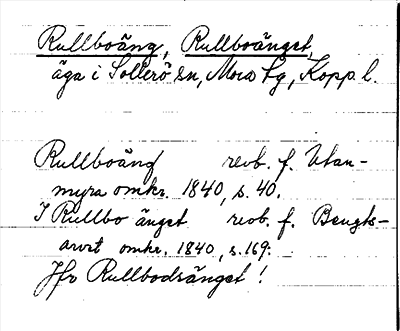 Rullboäng, Rullboänget,
äga i Sollerö sn, Mora tg, Kopp. l.
Rullboäng revb. f. Utan-
myra omkr. 1840, s. 40.
I Rullbo änget revb. f. Bengts-
arvet omkr. 1840, s. 169.
Jfr Rullbodsänget!